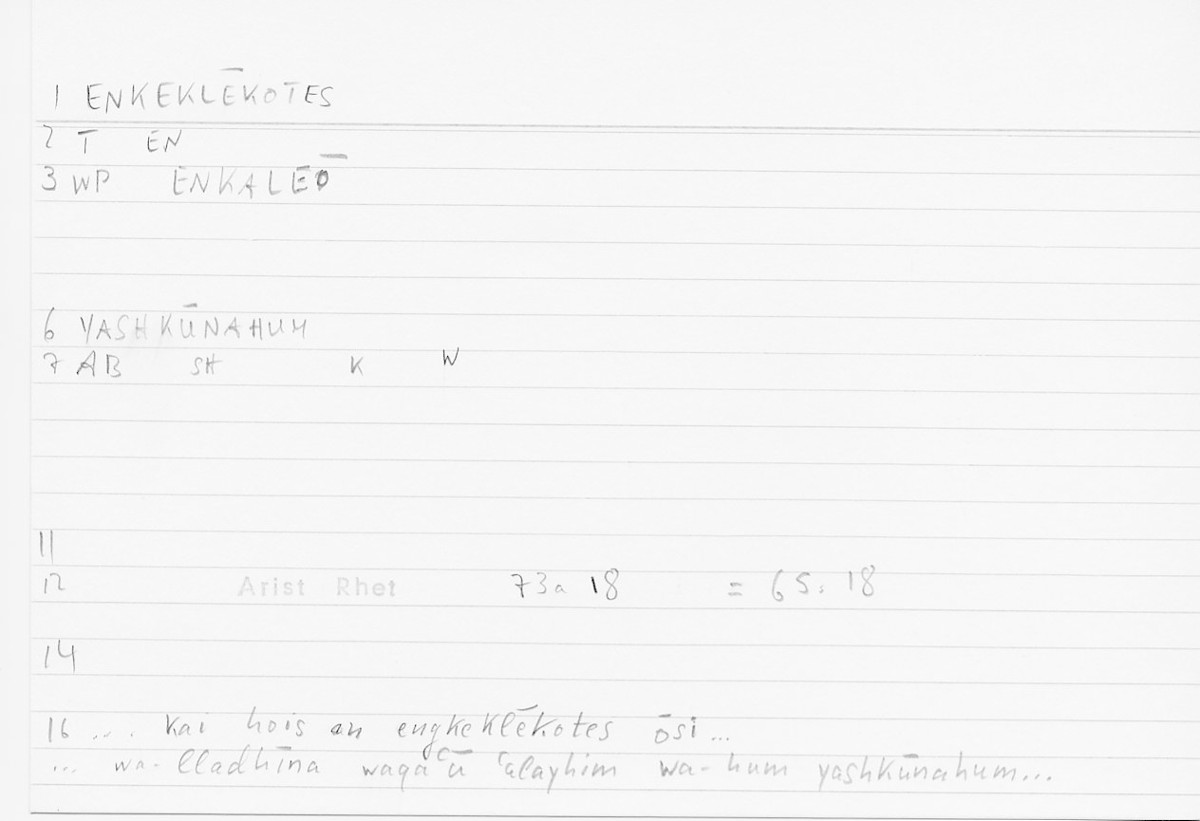 1 ENKEKLĒKOTES
2 T EN
3 WP ENKALEŌ
6 YASHKŪNAHUM
7 AB SH K W
11
12 Arist Rhet 73a 18 = 65: 18
14
16 .... kai hois an engkeklēkotes ōsi ...
... wa-lladhīna waqaʿū ʿalayhim wa-hum yashkūnahum...